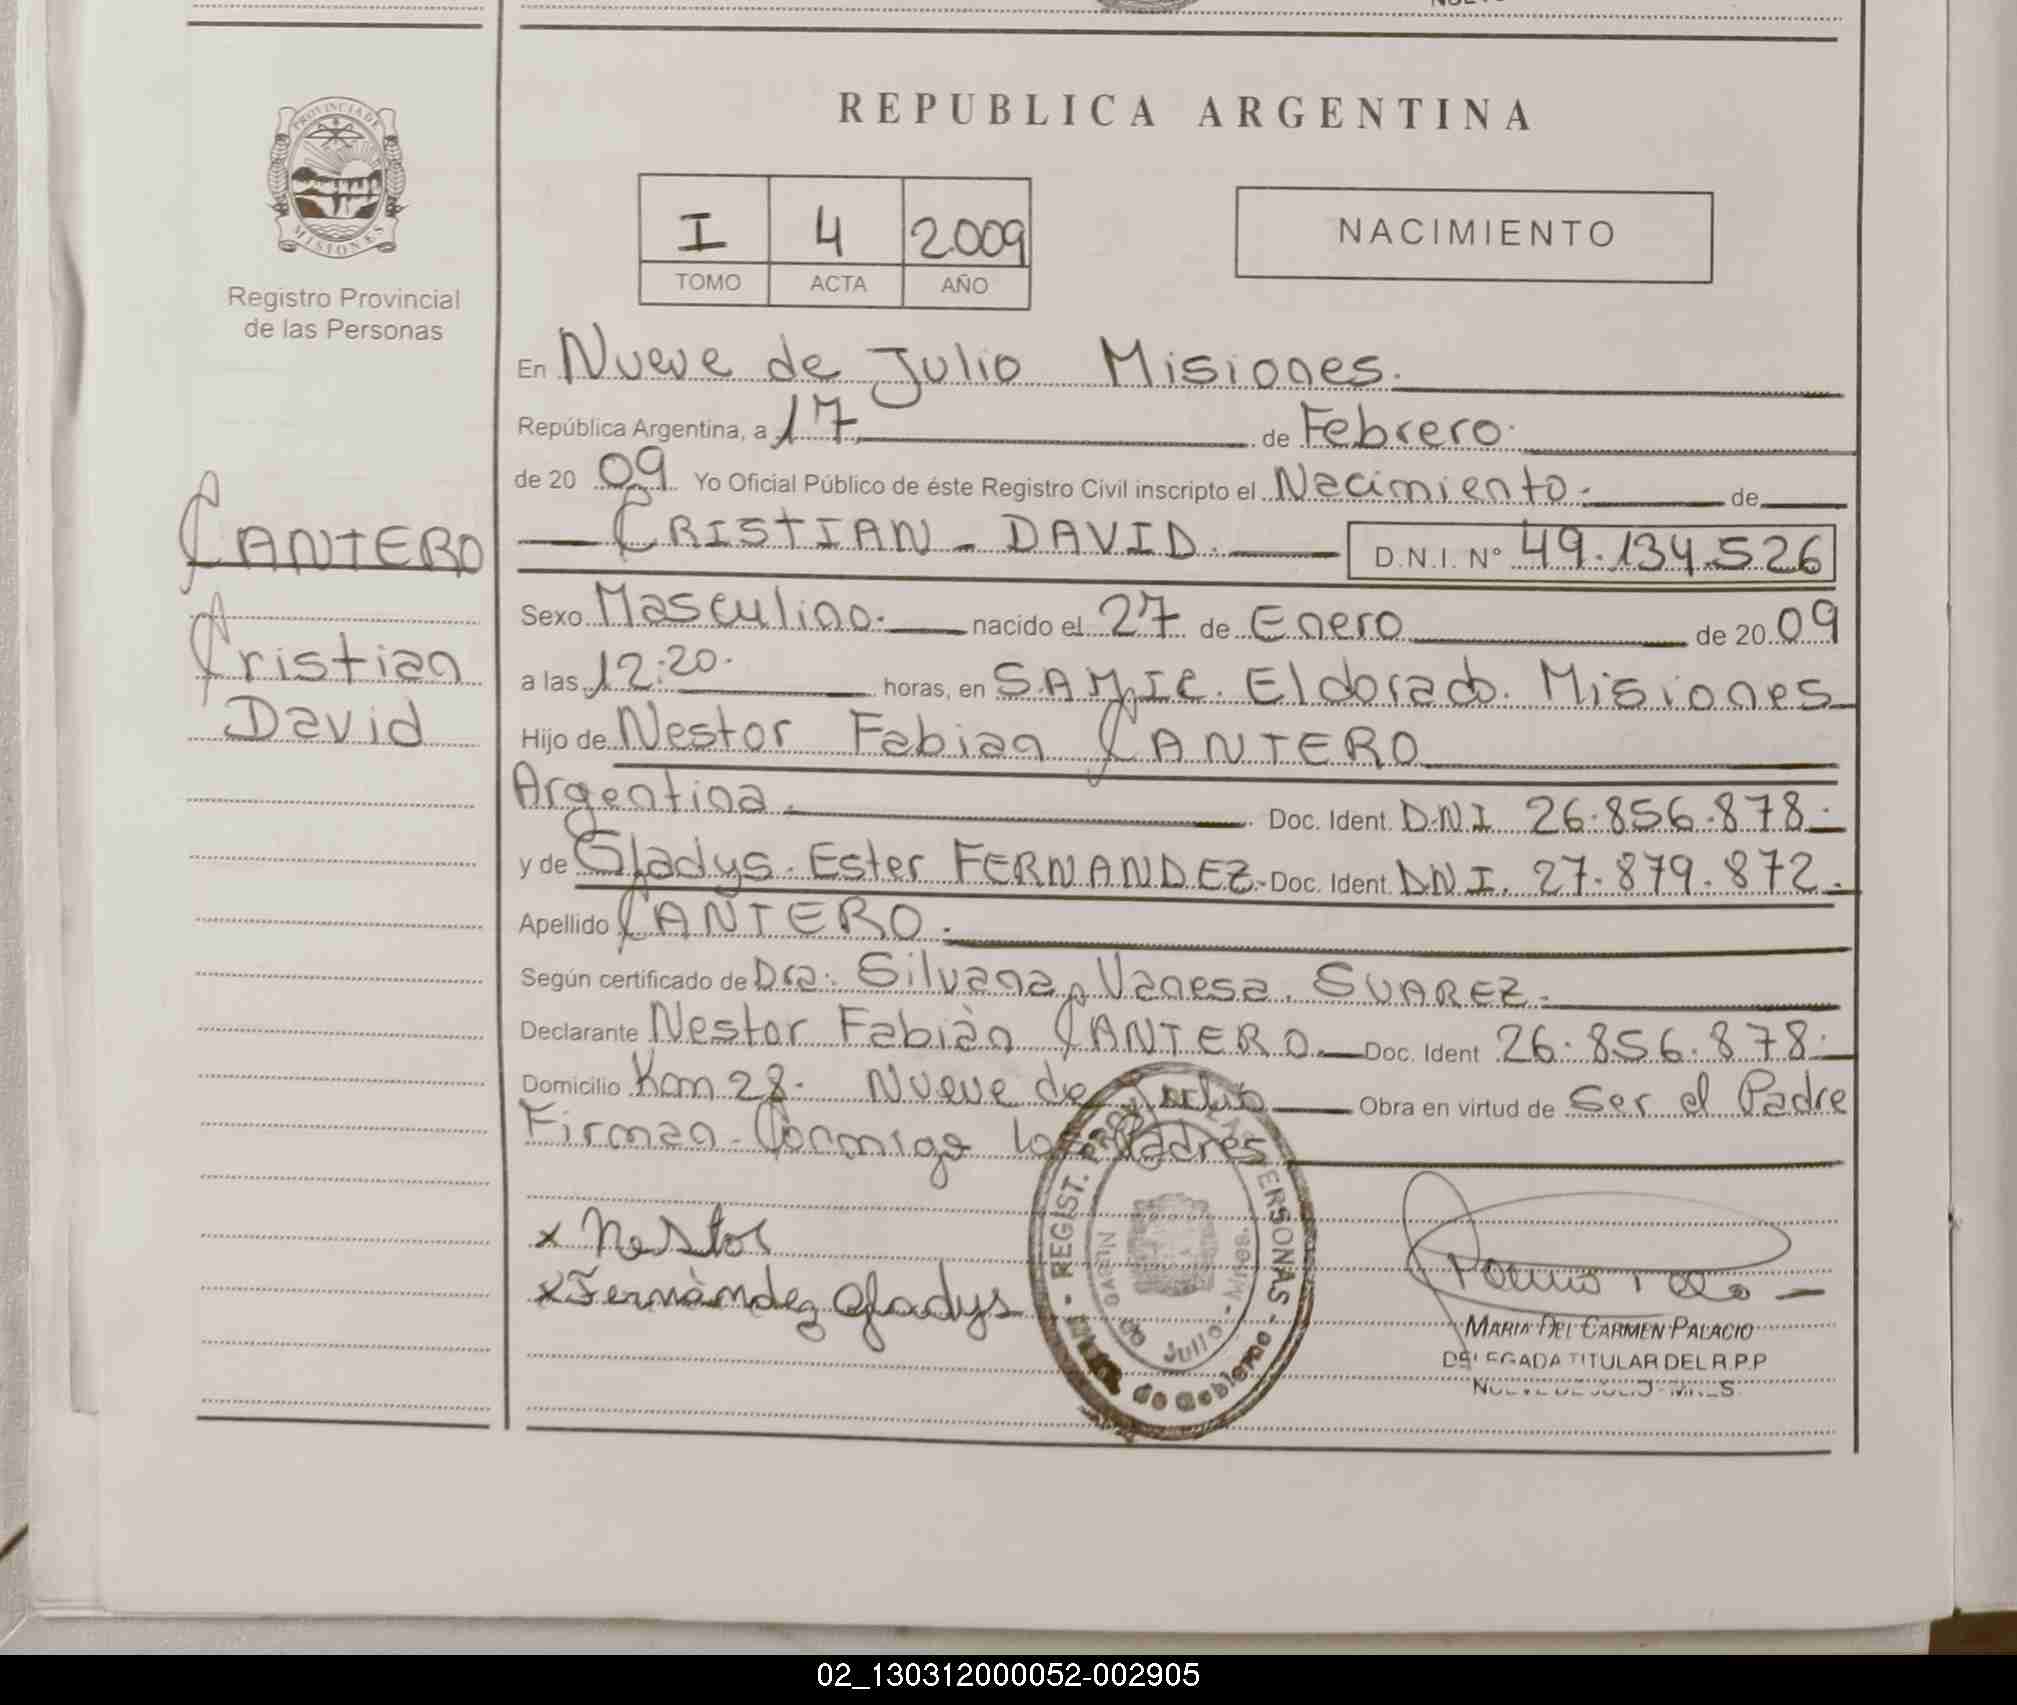 REPUBLICA ARGENTINA
PROVINCIA DE MISIONES
Registro Provincial
de las Personas
I 4 2009
TOMO ACTA AÑO
NACIMIENTO
En Nueve de Julio Misiones.
República Argentina, a 17 de Febrero.
de 20 09 Yo Oficial Público de éste Registro Civil inscripto el Nacimiento. de
CRISTIAN - DAVID. D.N.I. N° 49.134.526
CANTERO
Cristian
David
Sexo Masculino. nacido el 27 de Enero de 20 09
a las 12:20. horas, en S.A.M.I.C. Eldorado. Misiones
Hijo de Nestor Fabian CANTERO
Argentina. Doc. Ident. D.N.I. 26.856.878.
y de Gladys. Ester FERNANDEZ. Doc. Ident. DNI. 27.879.872.
Apellido CANTERO.
Según certificado de Dra. Silvana Vanesa. SUAREZ.
Declarante Nestor Fabiàn CANTERO. Doc. Ident 26.856.878.
Domicilio Km 28. Nueve de Julio Obra en virtud de Ser el Padre
Firman Conmigo los Padres
x Nestor
x Fernàndez Gladys
REGIST. PERSONAS
Nueve de Julio - Mnes.
de Gobierno
MARIA DEL CARMEN PALACIO
DELEGADA TITULAR DEL R.P.P
NUEVE DE JULIO - MNES
02_130312000052-002905